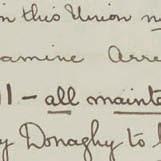 in this Union
amine Arre
1 - all maint
y Donaghy to